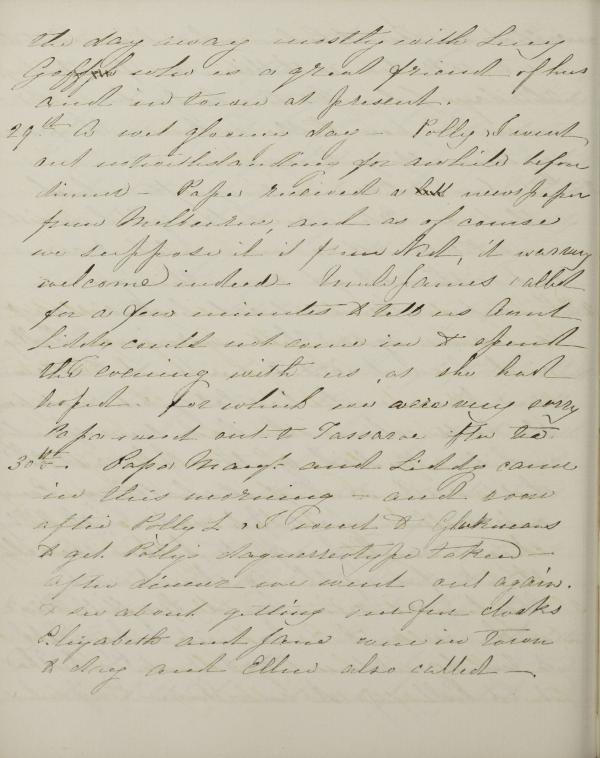 the day away mostly with Lucy
who is a great friend of hers
and in town at present.
29th A wet gloomie day — Polly & I went
out notwithstanding for awhile before
dinner — Papa received a newspaper
from Melbourne, and as of course
we suppose it is from Ned, it was very
welcome indeed. Uncle James called
for a few minutes to tell us Aunt
Liddy could not come in & spend
the evening with us, as she had
hoped. For which we were very sorry
Papa went out to after tea
30th. Papa Margt. and Liddy came
in this morning — and soon
after Polly L & I went to Gluckmans
to get Polly's daguerreotype taken —
after dinner we went out again.
to see about getting our fur cloaks
Elizabeth and Jane were in town
to day and Ellen also called —